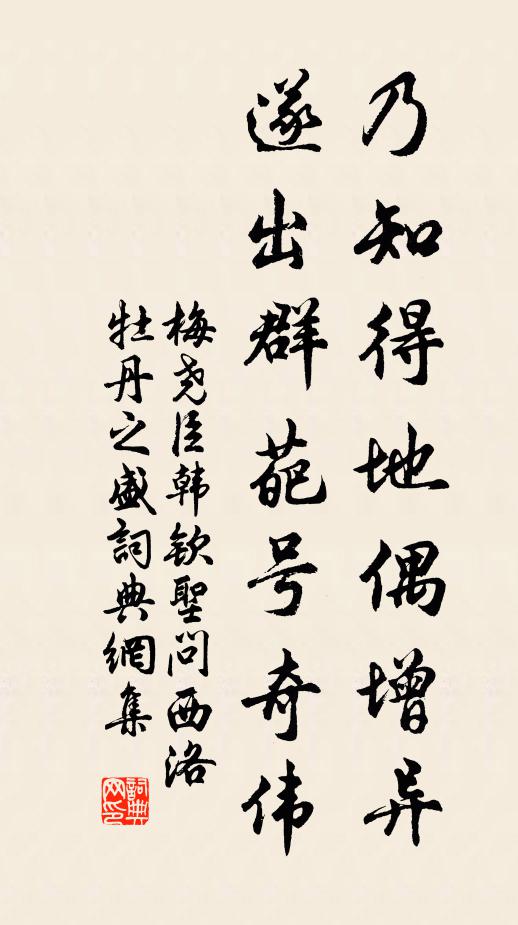 乃知得地偶增异
遂出群葩号奇伟
梅尧臣韩钦聖问西洛
牡丹之盛詞典網集
詞典
网印